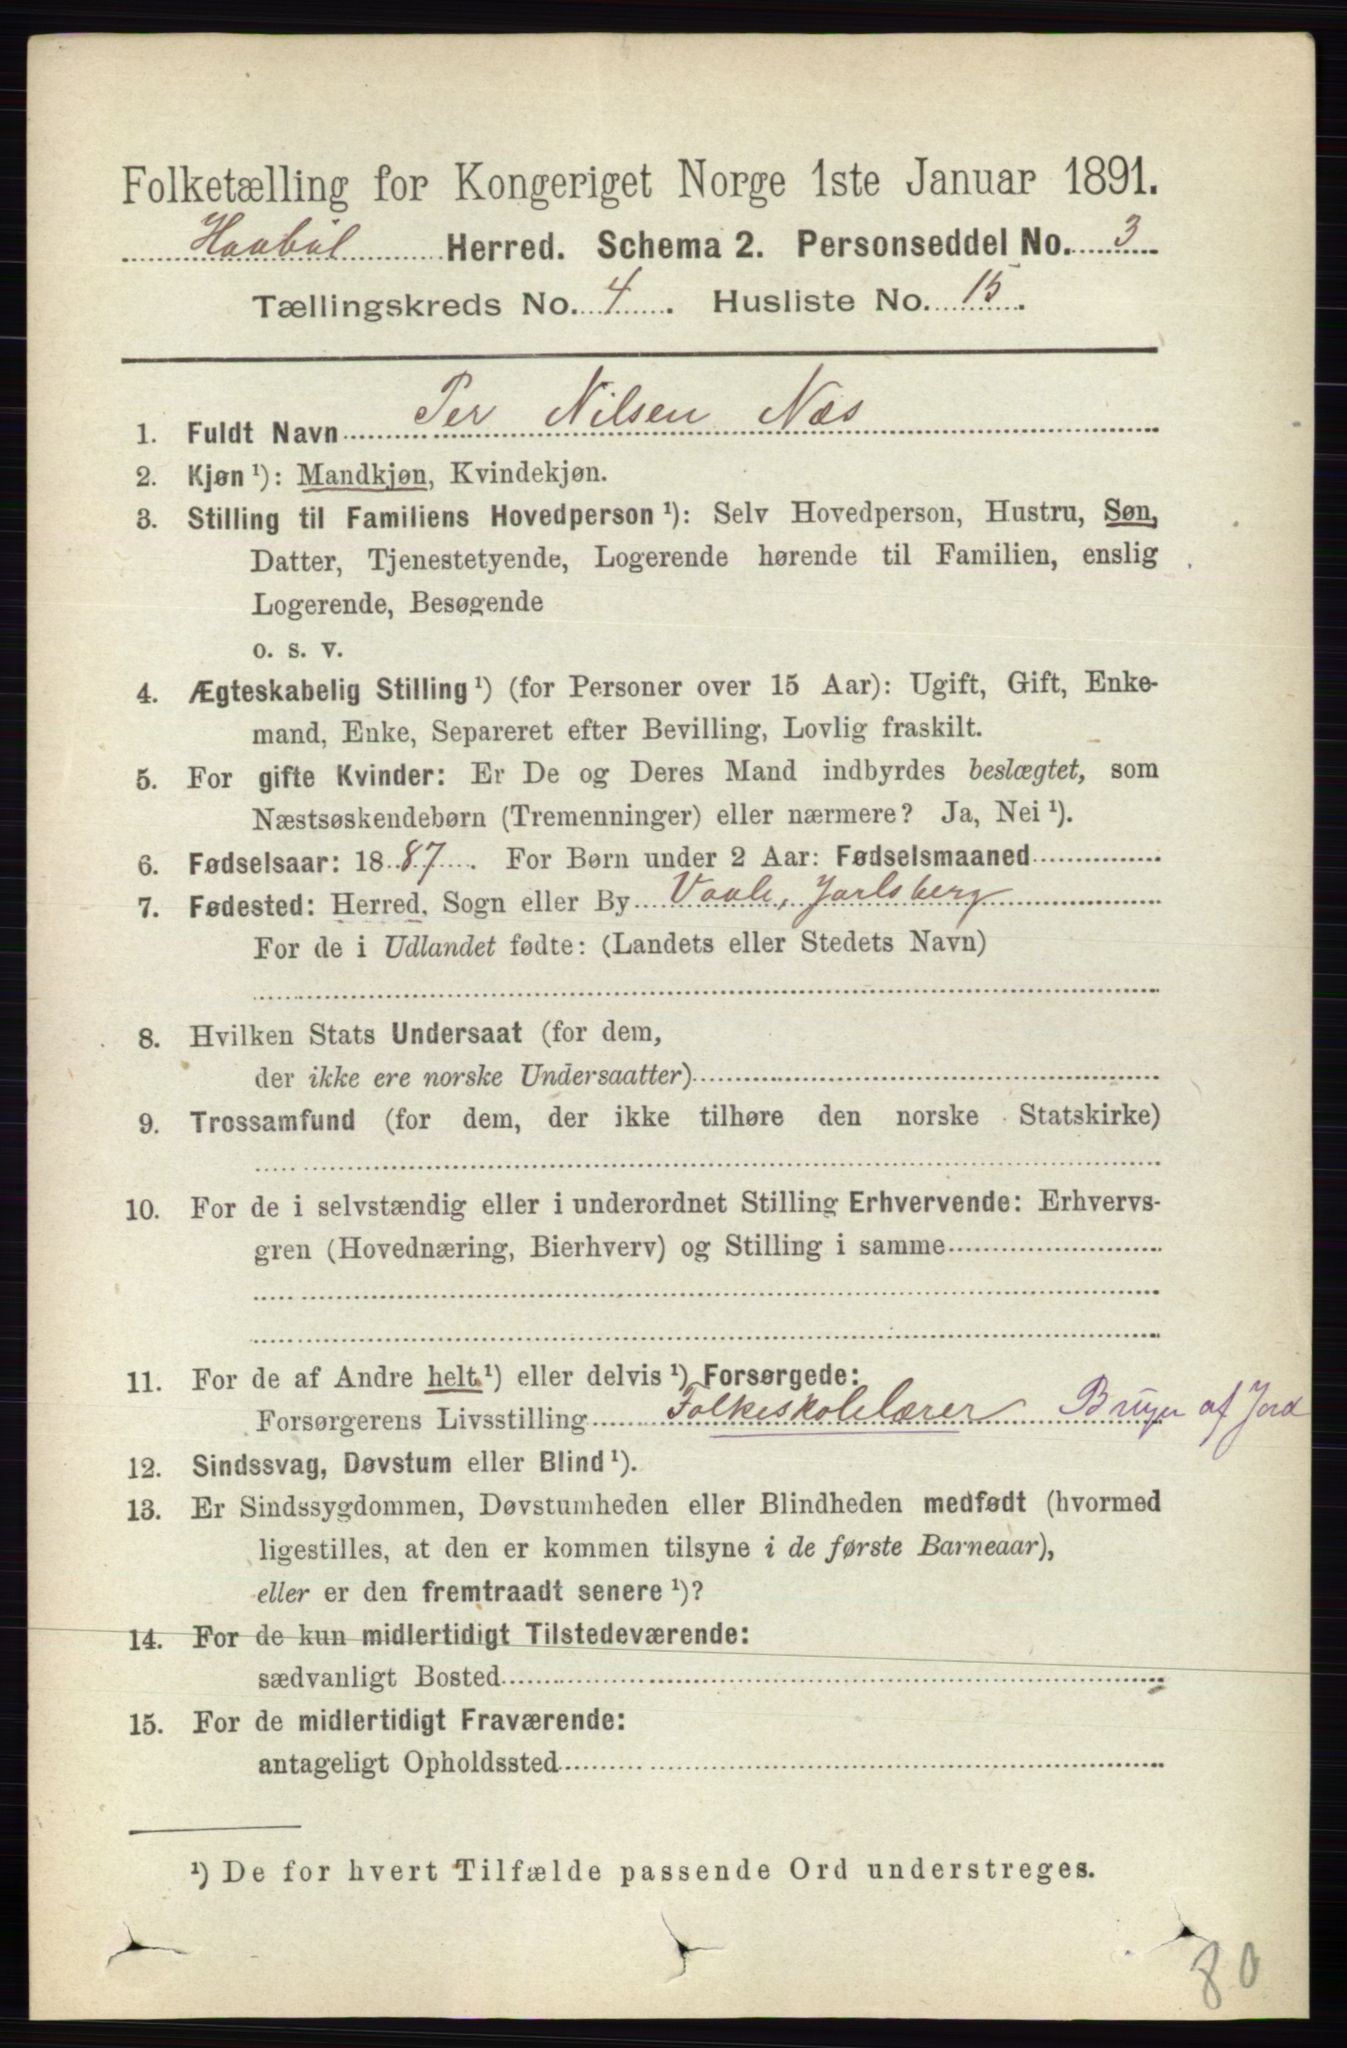 Folketælling for Kongeriget Norge 1ste Januar 1891.
Haabøl Herred. Schema 2. Personseddel No. 3
Tællingskreds No. 4. Husliste No. 15.
1. Fuldt Navn Per Nilsen Næs
2. Kjøn ¹): Mandkjøn, Kvindekjøn.
3. Stilling til Familiens Hovedperson ¹): Selv Hovedperson, Hustru, Søn,
Datter, Tjenestetyende, Logerende hørende til Familien, enslig
Logerende, Besøgende
o. s. v.
4. Ægteskabelig Stilling ¹) (for Personer over 15 Aar): Ugift, Gift, Enke-
mand, Enke, Separeret efter Bevilling, Lovlig fraskilt.
5. For gifte Kvinder: Er De og Deres Mand indbyrdes beslægtet, som
Næstsøskendebørn (Tremenninger) eller nærmere? Ja, Nei ¹).
6. Fødselsaar: 1887. For Børn under 2 Aar: Fødselsmaaned
7. Fødested: Herred, Sogn eller By Vaale, Jarlsberg
For de i Udlandet fødte: (Landets eller Stedets Navn)
8. Hvilken Stats Undersaat (for dem,
der ikke ere norske Undersaatter)
9. Trossamfund (for dem, der ikke tilhøre den norske Statskirke)
10. For de i selvstændig eller i underordnet Stilling Erhvervende: Erhvervs-
gren (Hovednæring, Bierhverv) og Stilling i samme
11. For de af Andre helt ¹) eller delvis ¹) Forsørgede:
Forsørgerens Livsstilling Folkeskolelærer Bruger af Jord
12. Sindssvag, Døvstum eller Blind ¹).
13. Er Sindssygdommen, Døvstumheden eller Blindheden medfødt (hvormed
ligestilles, at den er kommen tilsyne i de første Barneaar),
eller er den fremtraadt senere ¹)?
14. For de kun midlertidigt Tilstedeværende:
sædvanligt Bosted
15. For de midlertidigt Fraværende:
antageligt Opholdssted
¹) De for hvert Tilfælde passende Ord understreges.
80